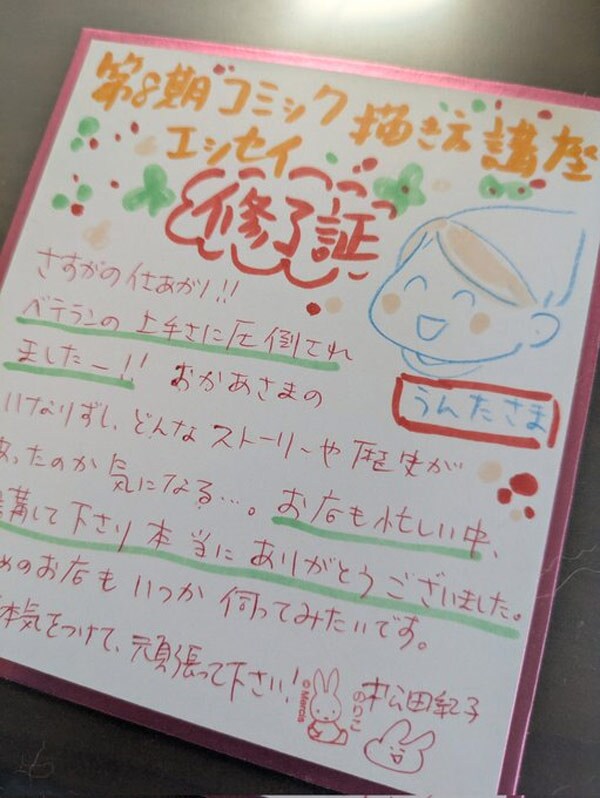 第8期コミック
エッセイ
描き方講座
修了証
さすがの仕あがり!!
ベテランの上手さに圧倒され
ましたー!! おかあさまの
いなりずし、どんなストーリーや歴史が
あったのか気になる…。お店も忙しい中、
講して下さり本当にありがとうございました。
のお店もいつか伺ってみたいです。
気をつけて、頑張って下さい!
うんたさま
© Mercis
松田紀子
のりこ